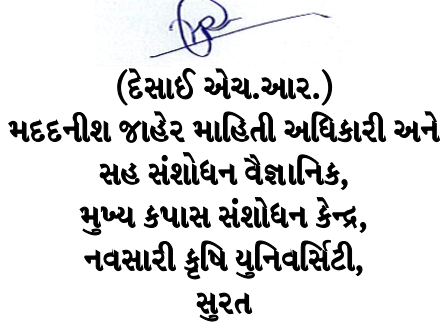 (દેસાઈ એચ.આર.)
મદદનીશ જાહેર માહિતી અધિકારી અને
સહ સંશોધન વૈજ્ઞાનિક,
મુખ્ય કપાસ સંશોધન કેન્દ્ર,
નવસારી કૃષિ યુનિવર્સિટી,
સુરત